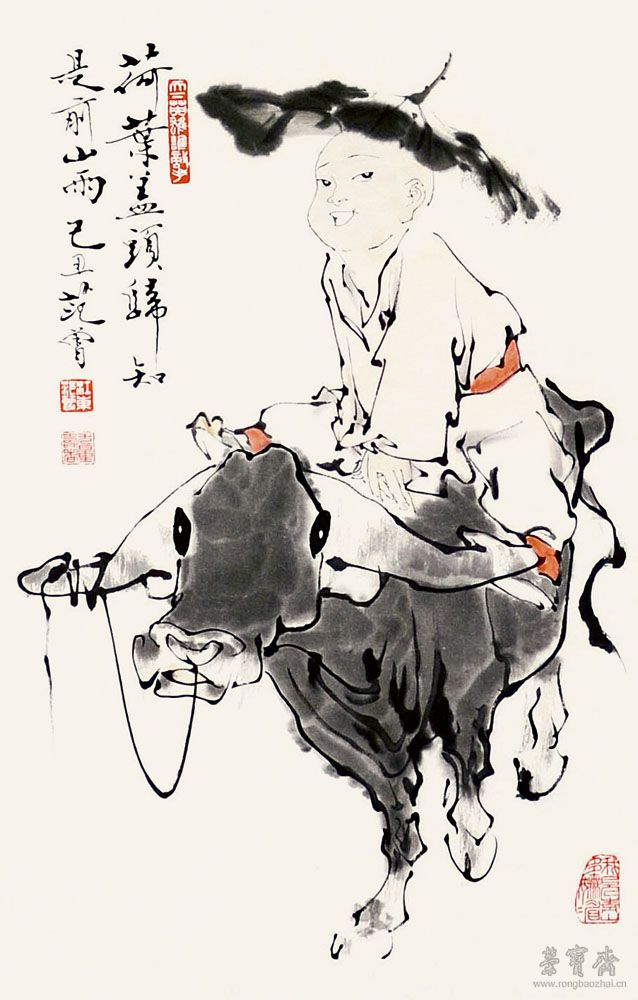 荷葉盖頭歸知
是前山雨己丑范曾
榮寶齋
www.rongbaozhai.cn